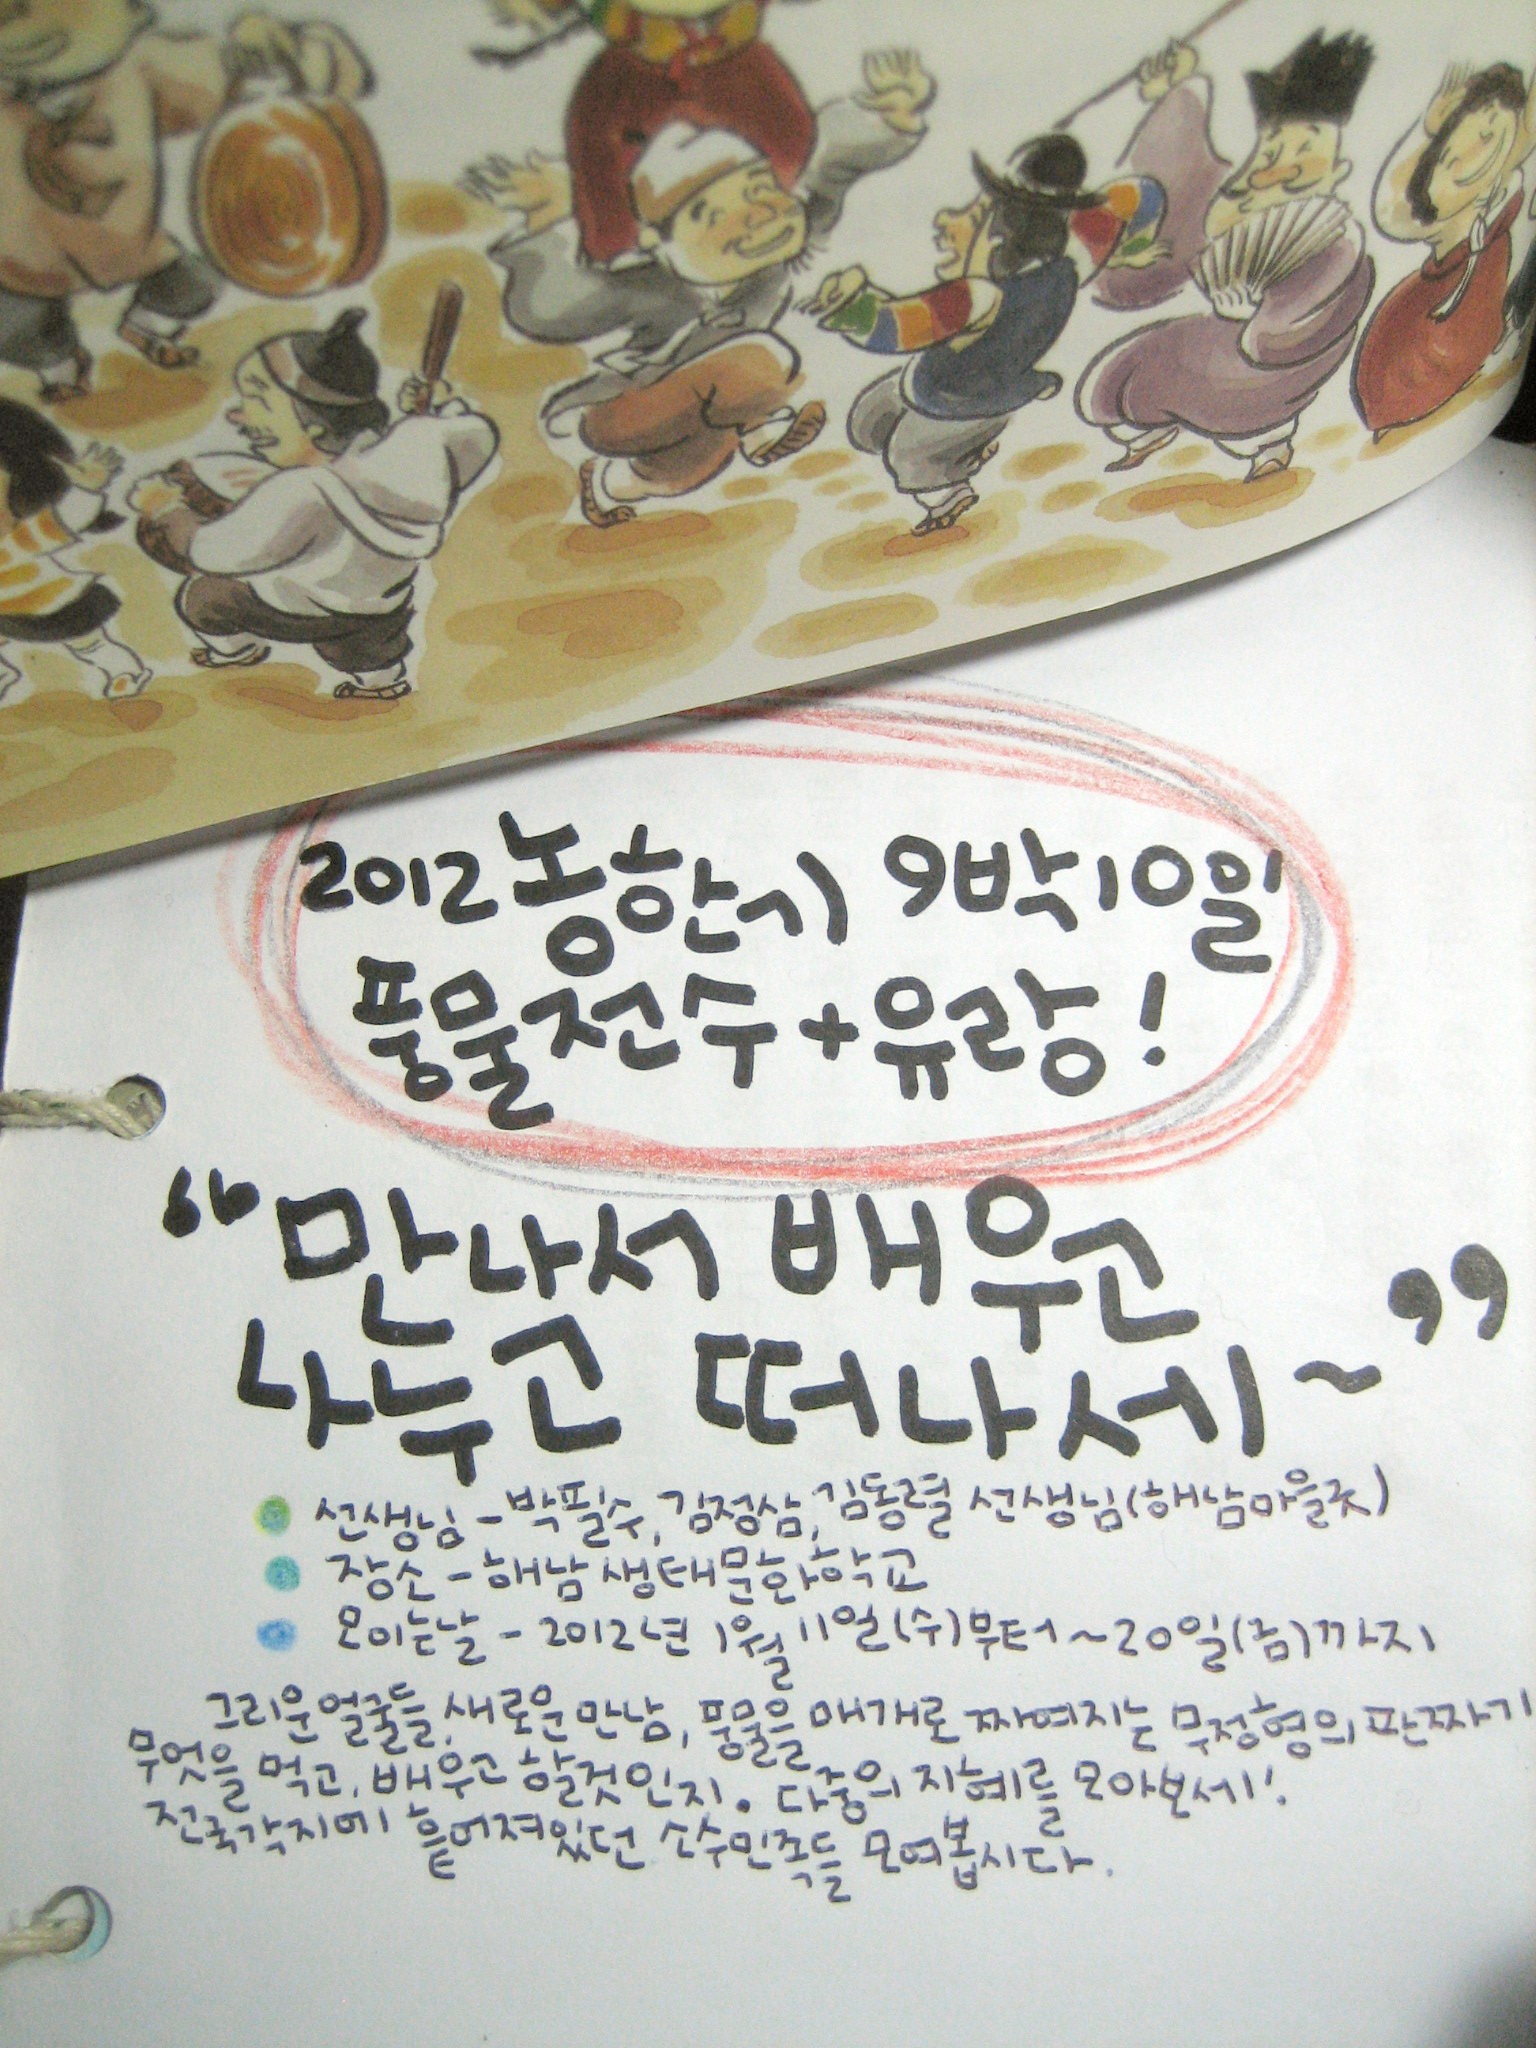 2012농한기 9박10일
풍물전수+유랑!
"만나서 배우고
나누고 떠나세~"
선생님-박필수, 김정삼, 김동렬 선생님(해남마을굿)
장소-해남 생태문화학교
모이는날-2012년 1월 11일(수)부터~20일(금)까지
그리운 얼굴들, 새로운 만남, 풍물을 매개로 짜여지는 무정형의 판짜기
무엇을 먹고, 배우고 할것인지. 다중의 지혜를 모아보세!
전국각지에 흩어져있던 소수민족들 모여봅시다.